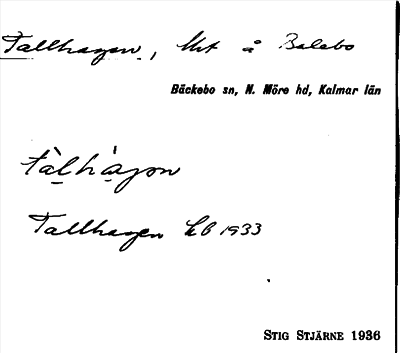 Tallhagen, lht å Balebo
Bäckebo sn, N. Möre hd, Kalmar län
tàlhàgon
Tallhagen LB 1933
STIG STJÄRNE 1936